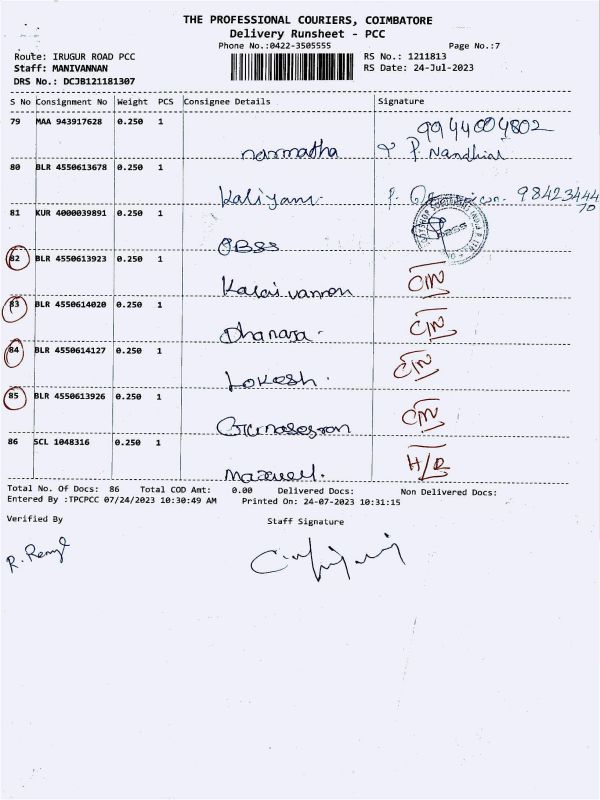 THE PROFESSIONAL COURIERS, COIMBATORE
Delivery Runsheet - PCC
Phone No.:0422-3505555 Page No.:7
Route: IRUGUR ROAD PCC RS No.: 1211813
Staff: MANIVANNAN RS Date: 24-Jul-2023
DRS No.: DCJB121181307
S No Consignment No Weight PCS Consignee Details Signature
79 MAA 943917628 0.250 1
9944004802
narmatha P. Nandhini
80 BLR 4550613678 0.250 1
Kaliyani P. 98423444
70
81 KUR 4000039891 0.250 1
OBSS
82 BLR 4550613923 0.250 1
Kalaivannan
83 BLR 4550614020 0.250 1
Dhanasa.
84 BLR 4550614127 0.250 1
Lokesh.
85 BLR 4550613926 0.250 1
Gunaseson
86 SCL 1048316 0.250 1
H/D
Total No. Of Docs: 86 Total COD Amt: 0.00 Delivered Docs: Non Delivered Docs:
Entered By :TPCPCC 07/24/2023 10:30:49 AM Printed On: 24-07-2023 10:31:15
Verified By Staff Signature